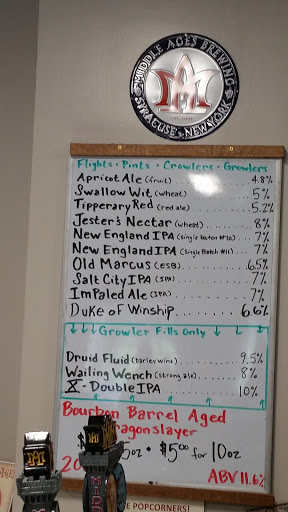 MIDDLE AGES BREWING
SYRACUSE • NEW YORK
Flights • Pints • Crowlers • Growlers
Apricot Ale (fruit) 4.8%
Swallow Wit (wheat) 5%
Tipperary Red (red ale) 5.2%
Jester's Nectar (wheat) 8%
New England IPA (Single batch #10) 7%
New England IPA (Single Batch #11) 7%
Old Marcus (ESB) 6.5%
Salt City IPA (IPA) 7%
ImPaled Ale (IPA) 7%
Duke of Winship 6.6%
↓↓↓ Growler Fills Only ↓ ↓ ↓
Druid Fluid (barley wine) 9.5%
Wailing Wench (strong ale) 8%
X - Double IPA 10%
Bourbon Barrel Aged
Dragonslayer
5oz • $5.00 for 10oz
20
ABV 11.6%
E POPCORNERS!